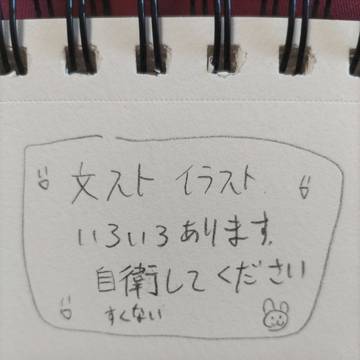 文スト イラスト
いろいろあります。
自衛してください
すくない